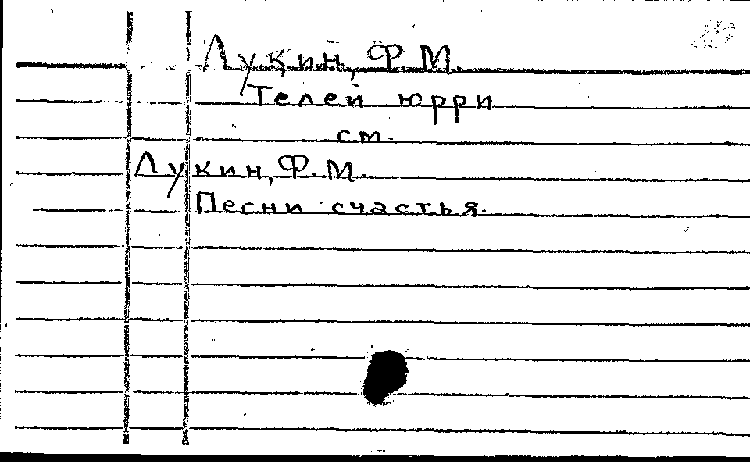 Лукин, Ф. М.
Телей юрри
см.
Лукин, Ф. М.
Песни счастья.